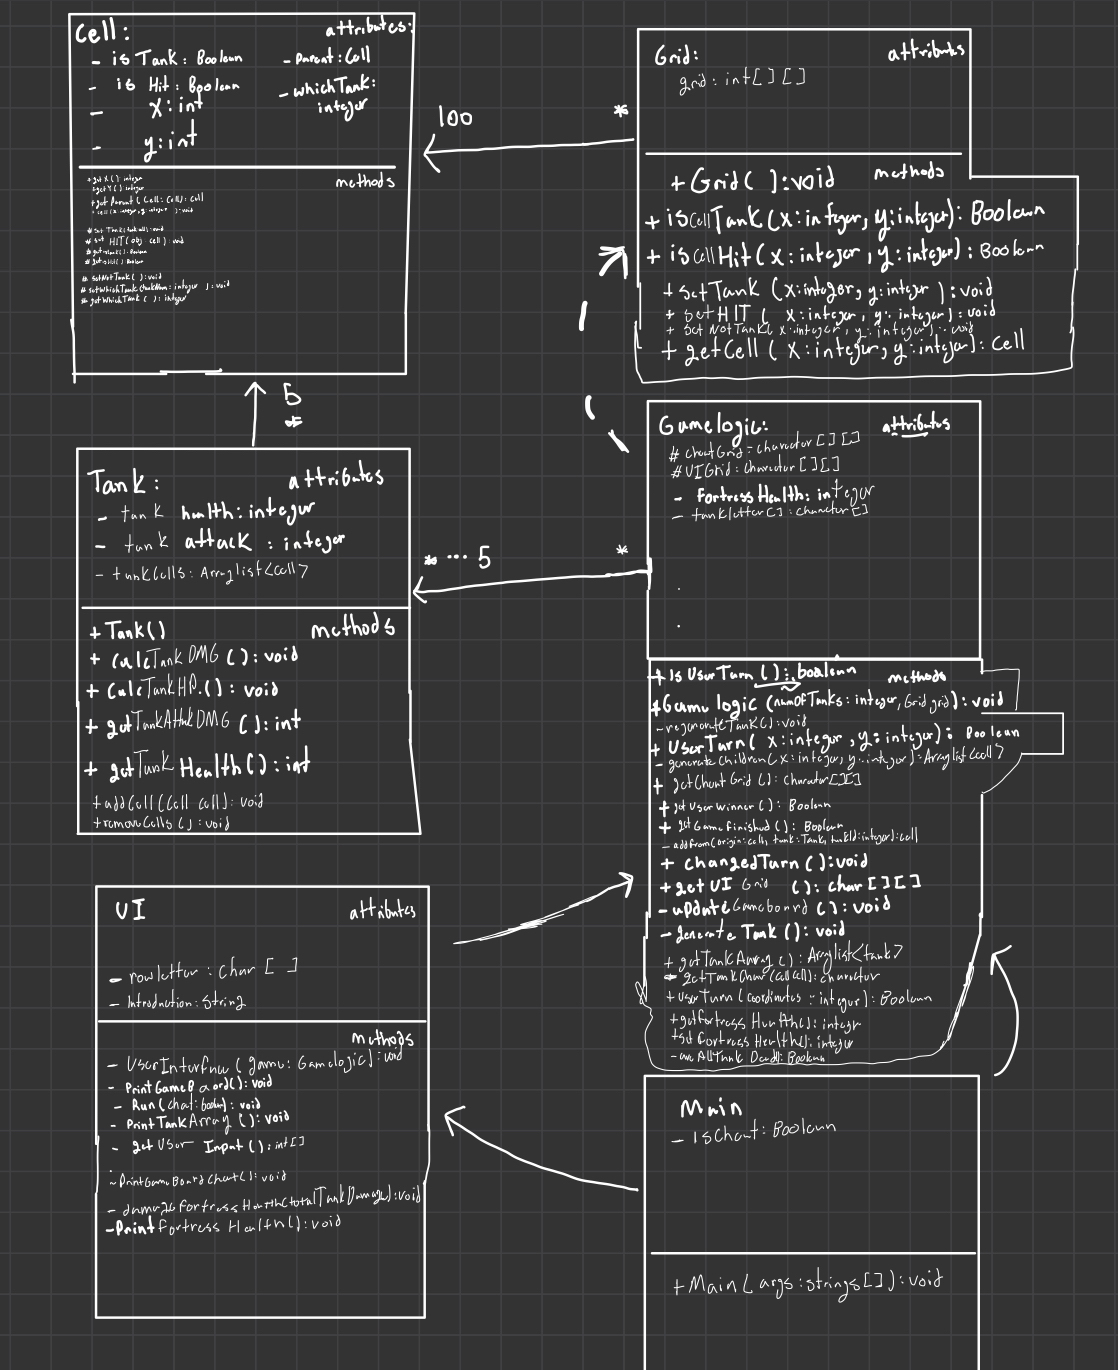 Cell:
attributes:
- is Tank: Boolean
- Parent: Cell
- is Hit: Boolean
- whichTank: integer
- x: int
- y: int
methods
+ get X(): integer
+ get Y(): integer
+ get Parent (Cell: Cell): Cell
+ cell (x: integer, y: integer): void
# set HIT (obj: cell): void
# setNotTank(): void
# setWhichTank(tankNum: integer): void
# getWhichTank(): integer
100
*
Grid:
attributes
grid: int[][]
methods
+ Grid(): void
+ isCellTank(x: integer, y: integer): Boolean
+ isCellHit(x: integer, y: integer): Boolean
+ setTank (x: integer, y: integer): void
+ setHIT (x: integer, y: integer): void
+ setNotTank(x: integer, y: integer): void
+ getCell (x: integer, y: integer): Cell
5
*
Tank:
attributes
- tank health: integer
- tank attack: integer
- tankCells: Arraylist<cell>
methods
+ Tank()
+ CalcTankDMG(): void
+ CalcTankHP.(): void
+ getTankAttkDMG(): int
+ getTank Health(): int
+ addCell(Cell cell): void
+ removeCells(): void
* ... 5
*
Gamelogic:
attributes
# cheatGrid: character[][]
# UIGrid: character[][]
- Fortress Health: integer
- tankletter[]: character[]
methods
+ Is UserTurn(): boolean
+ Game logic (numOfTanks: integer, Grid grid): void
- regenerateTank(): void
+ UserTurn(x: integer, y: integer): Boolean
- generateChildren(x: integer, y: integer): Arraylist<cell>
+ getCheat Grid(): Character[][]
+ get User winner(): Boolean
+ get Game Finished(): Boolean
- addFrom(origin: cell, tank: Tank, tankId: integer): cell
+ changedTurn(): void
+ get UI Grid (): char[][]
- update Gameboard(): void
- generate Tank(): void
+ getTankArray(): Arraylist<tank>
getTankChar(cell cell): character
+ userTurn (coordinates: integer): Boolean
+ getFortress Health(): integer
+ set Fortress Health(): integer
- areAllTank Dead(): Boolean
UI
attributes
- rowletter: Char[]
- Introduction: String
methods
- UserInterface (game: Gamelogic): void
- PrintGameBoard(): void
- Run(cheat: boolean): void
- PrintTankArray(): void
- get User Input(): int[]
- PrintGameBoardCheat(): void
- damageFortressHealth(totalTankDamage): void
- Print fortress Health(): void
Main
- isCheat: Boolean
+ Main(args: strings[]): void